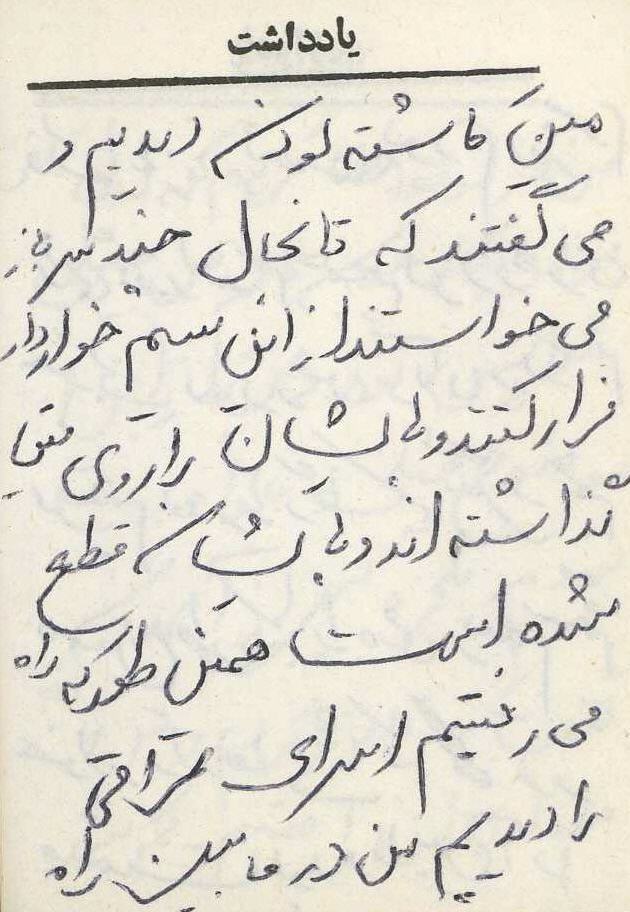 یادداشت
مین کاشته بودند دیدیم و
می گفتند که تابحال چند سرباز
می خواستند از این سیم خواردار
فرار کنند و پایشان را روی مین
گذاشته اند و پایشان قطع
شده است همین طور که راه
می رفتیم اسرای عراقی
را دیدیم من در مابین راه